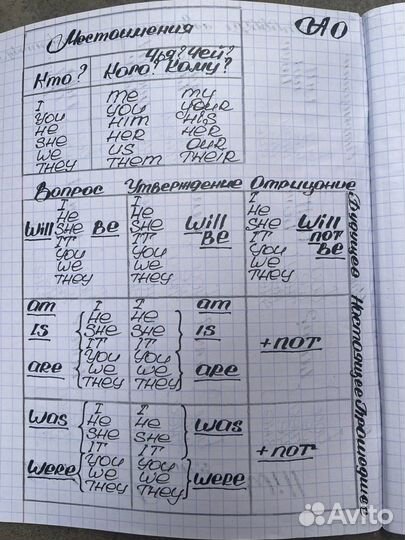 Местоимения
А0
Чья? Чей?
Кто? Кого? Кому?
I me my
you you your
He Him His
SHe Her Her
we us our
THey THem THeir
Вопрос Утверждение Отрицание
I I I
He He He
Will SHe Be SHe Will Be SHe Will not Be
IT IT IT
You You You
We We We
THey THey THey
Будущее
am I I am
He He
is SHe SHe is
IT IT
You You
are We We are
THey THey
+not
Настоящее
was I I was
He He
SHe SHe
IT IT
were You You were
We We
THey THey
+not
Прошедшее
Avito